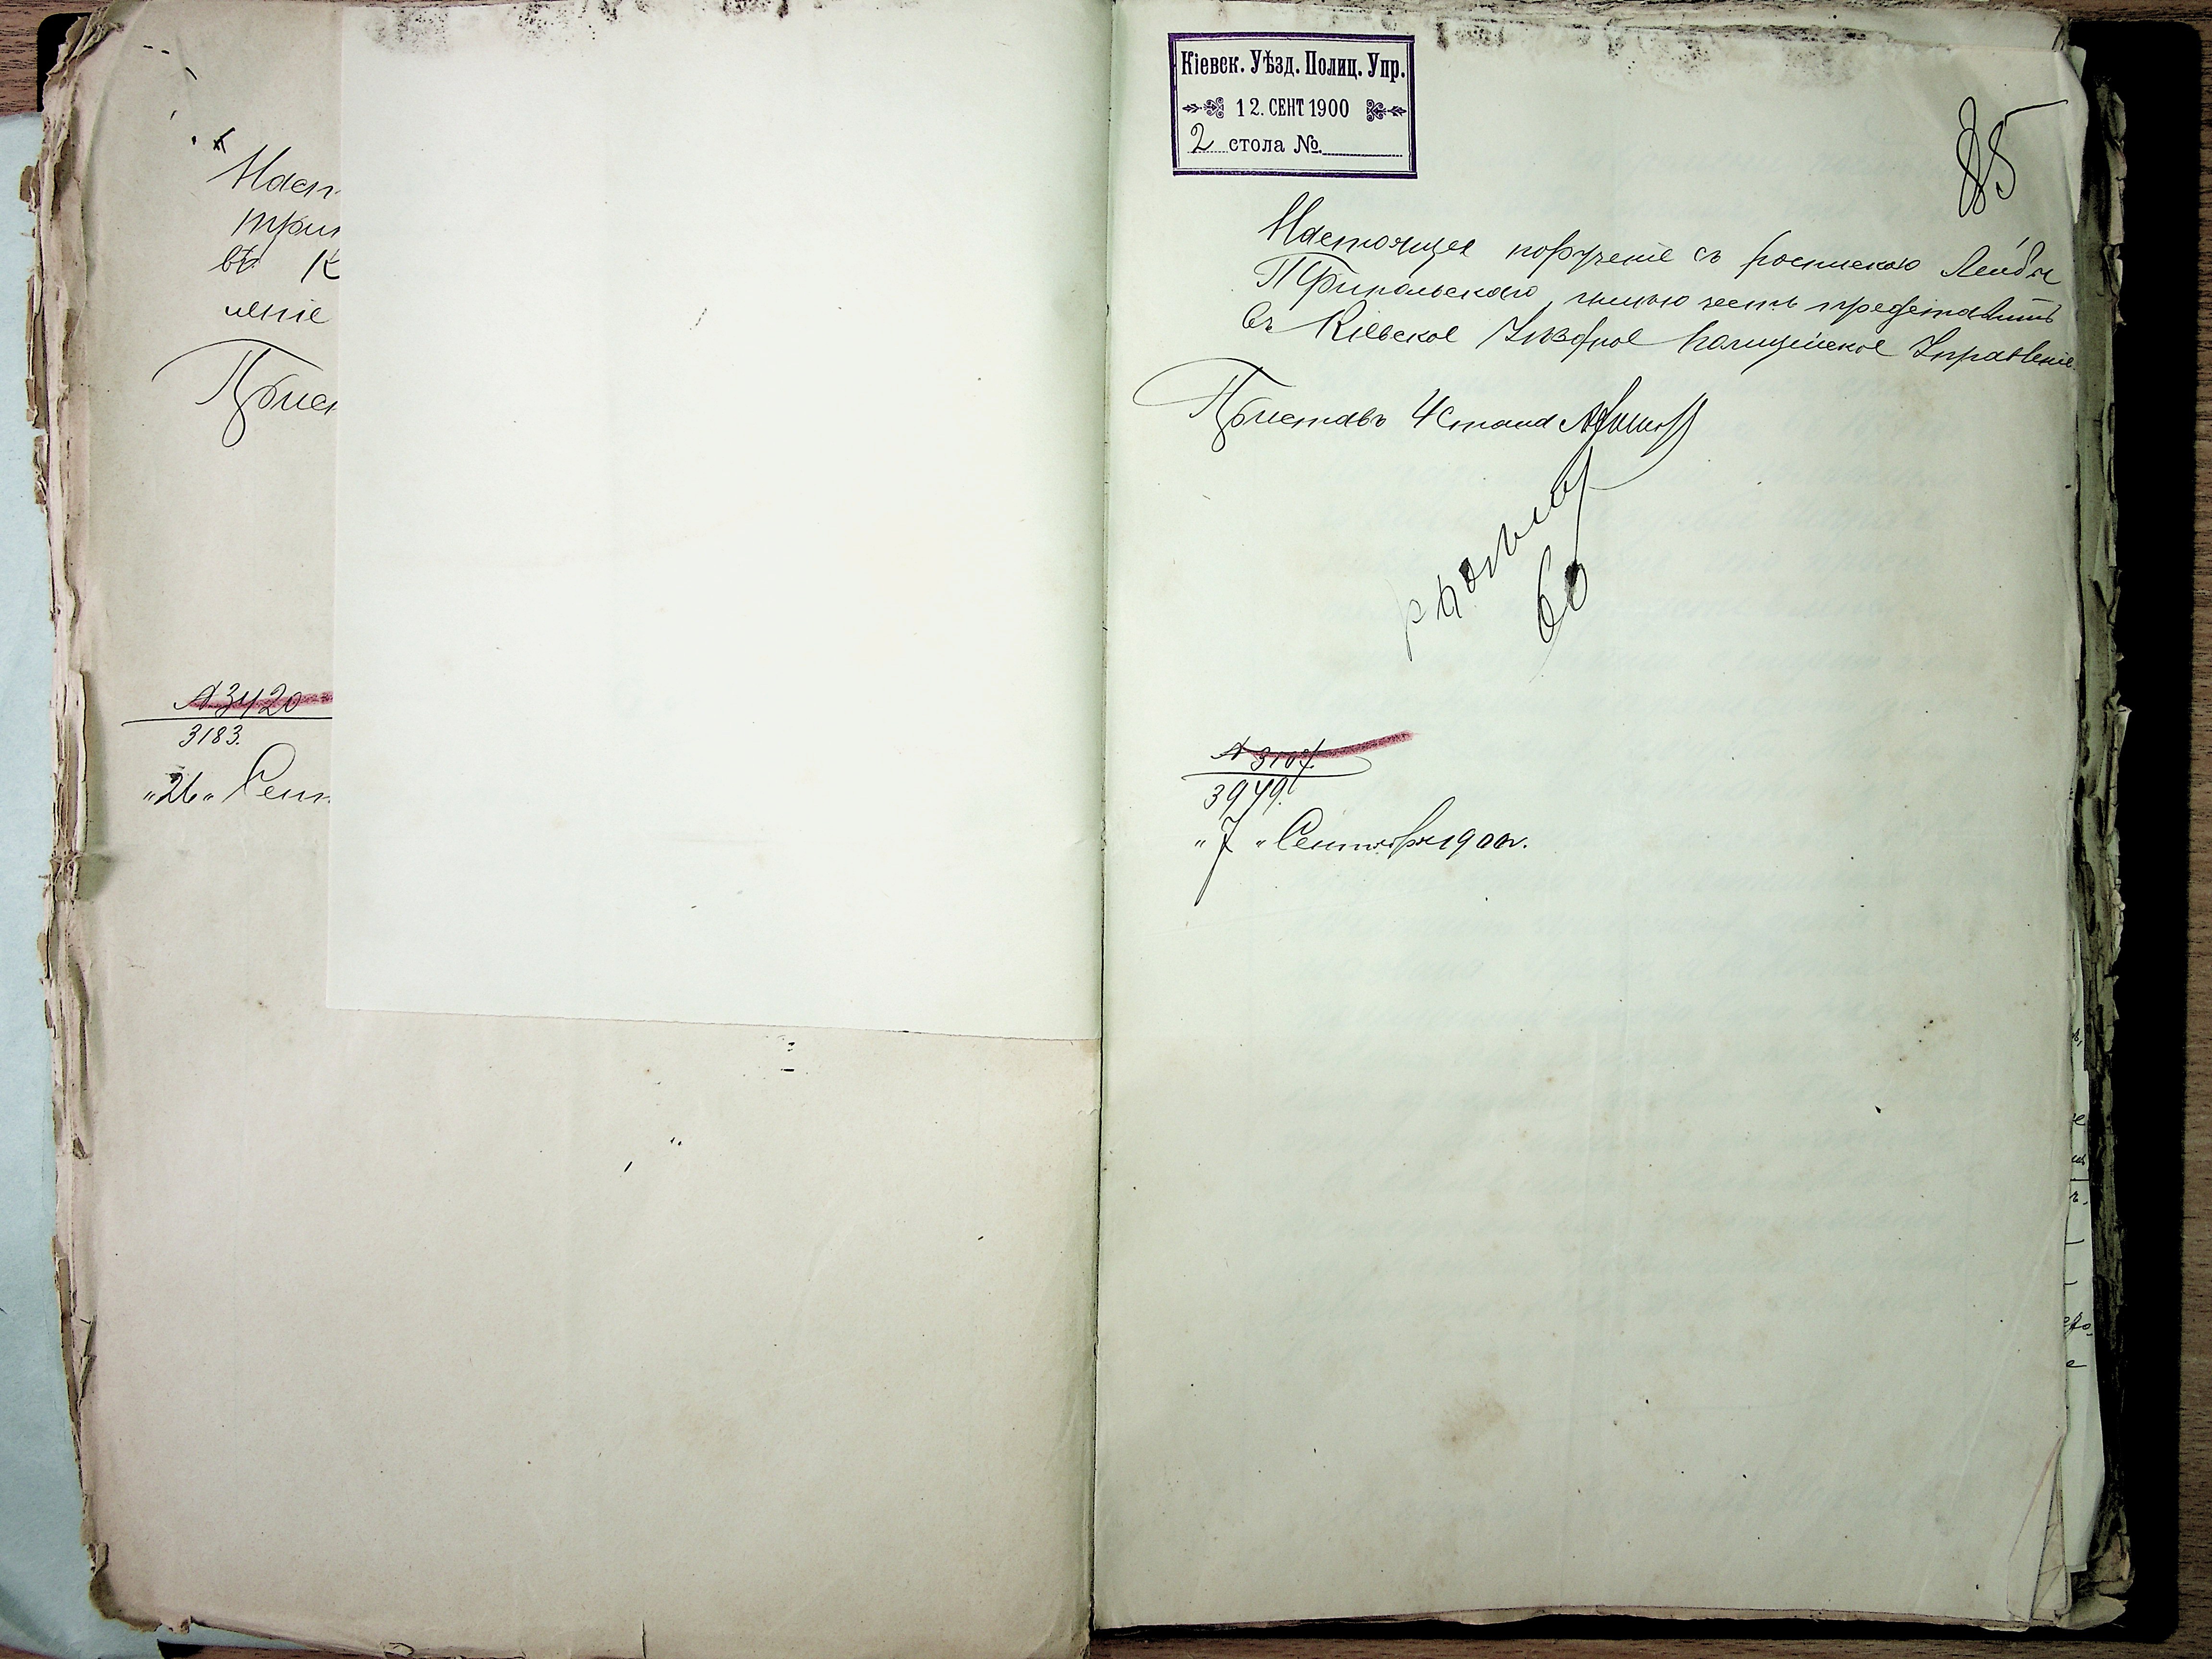 Наст
три
въ К
леніе
Прист
№ 3420
3183.
„26„ Сент
Кіевск. Уѣзд. Полиц. Упр.
12. СЕНТ 1900
2 стола №
85
Настоящее порученіе съ роспискою Лейбы
Трипольскаго, имѣю честь представить
въ Кіевское Уѣздное Полицейское Управленіе.
Приставъ 4 стана
60
3949.
„7„ Сентября 1900 г.